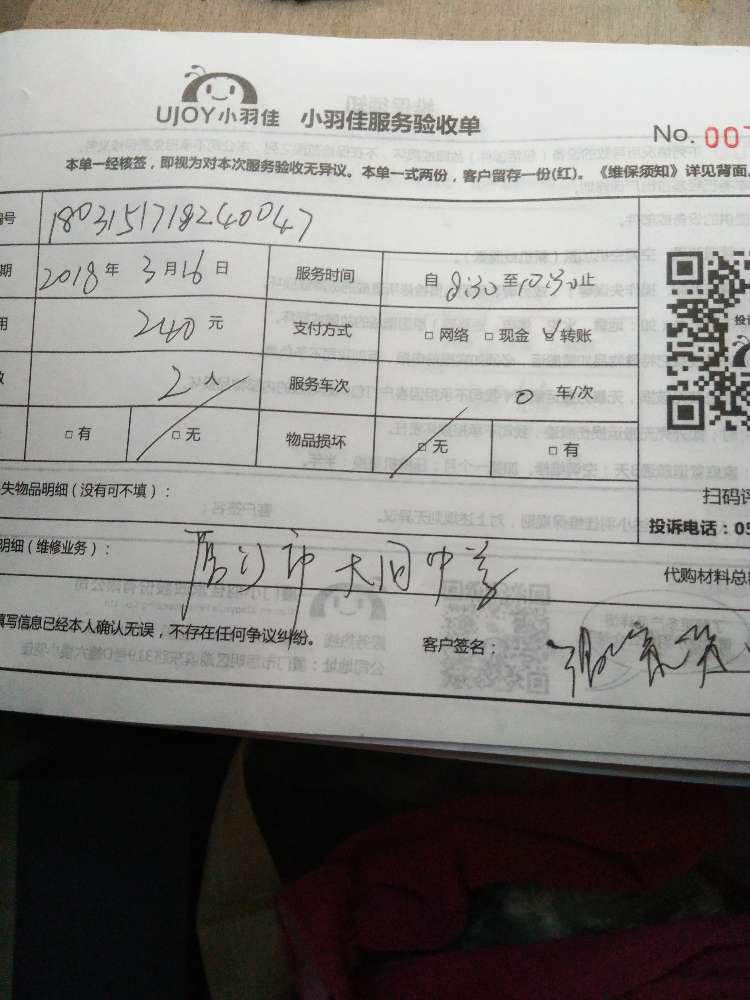 UJOY小羽佳 小羽佳服务验收单
No. 007
本单一经核签，即视为对本次服务验收无异议。本单一式两份，客户留存一份(红)。《维保须知》详见背面。
号 1803151718240047
期 2018 年 3 月 16 日 服务时间 自 8:30 至 10:30 止
用 240 元 支付方式 □ 网络 □ 现金 ☑ 转账
数 2 人 服务车次 0 车/次
□ 有 □ 无 物品损坏 □ 无 □ 有
失物品明细（没有可不填）：
扫码评
投诉电话：05
明细（维修业务）： 厦门市大同中学
代购材料总额
填写信息已经本人确认无误，不存在任何争议纠纷。 客户签名：